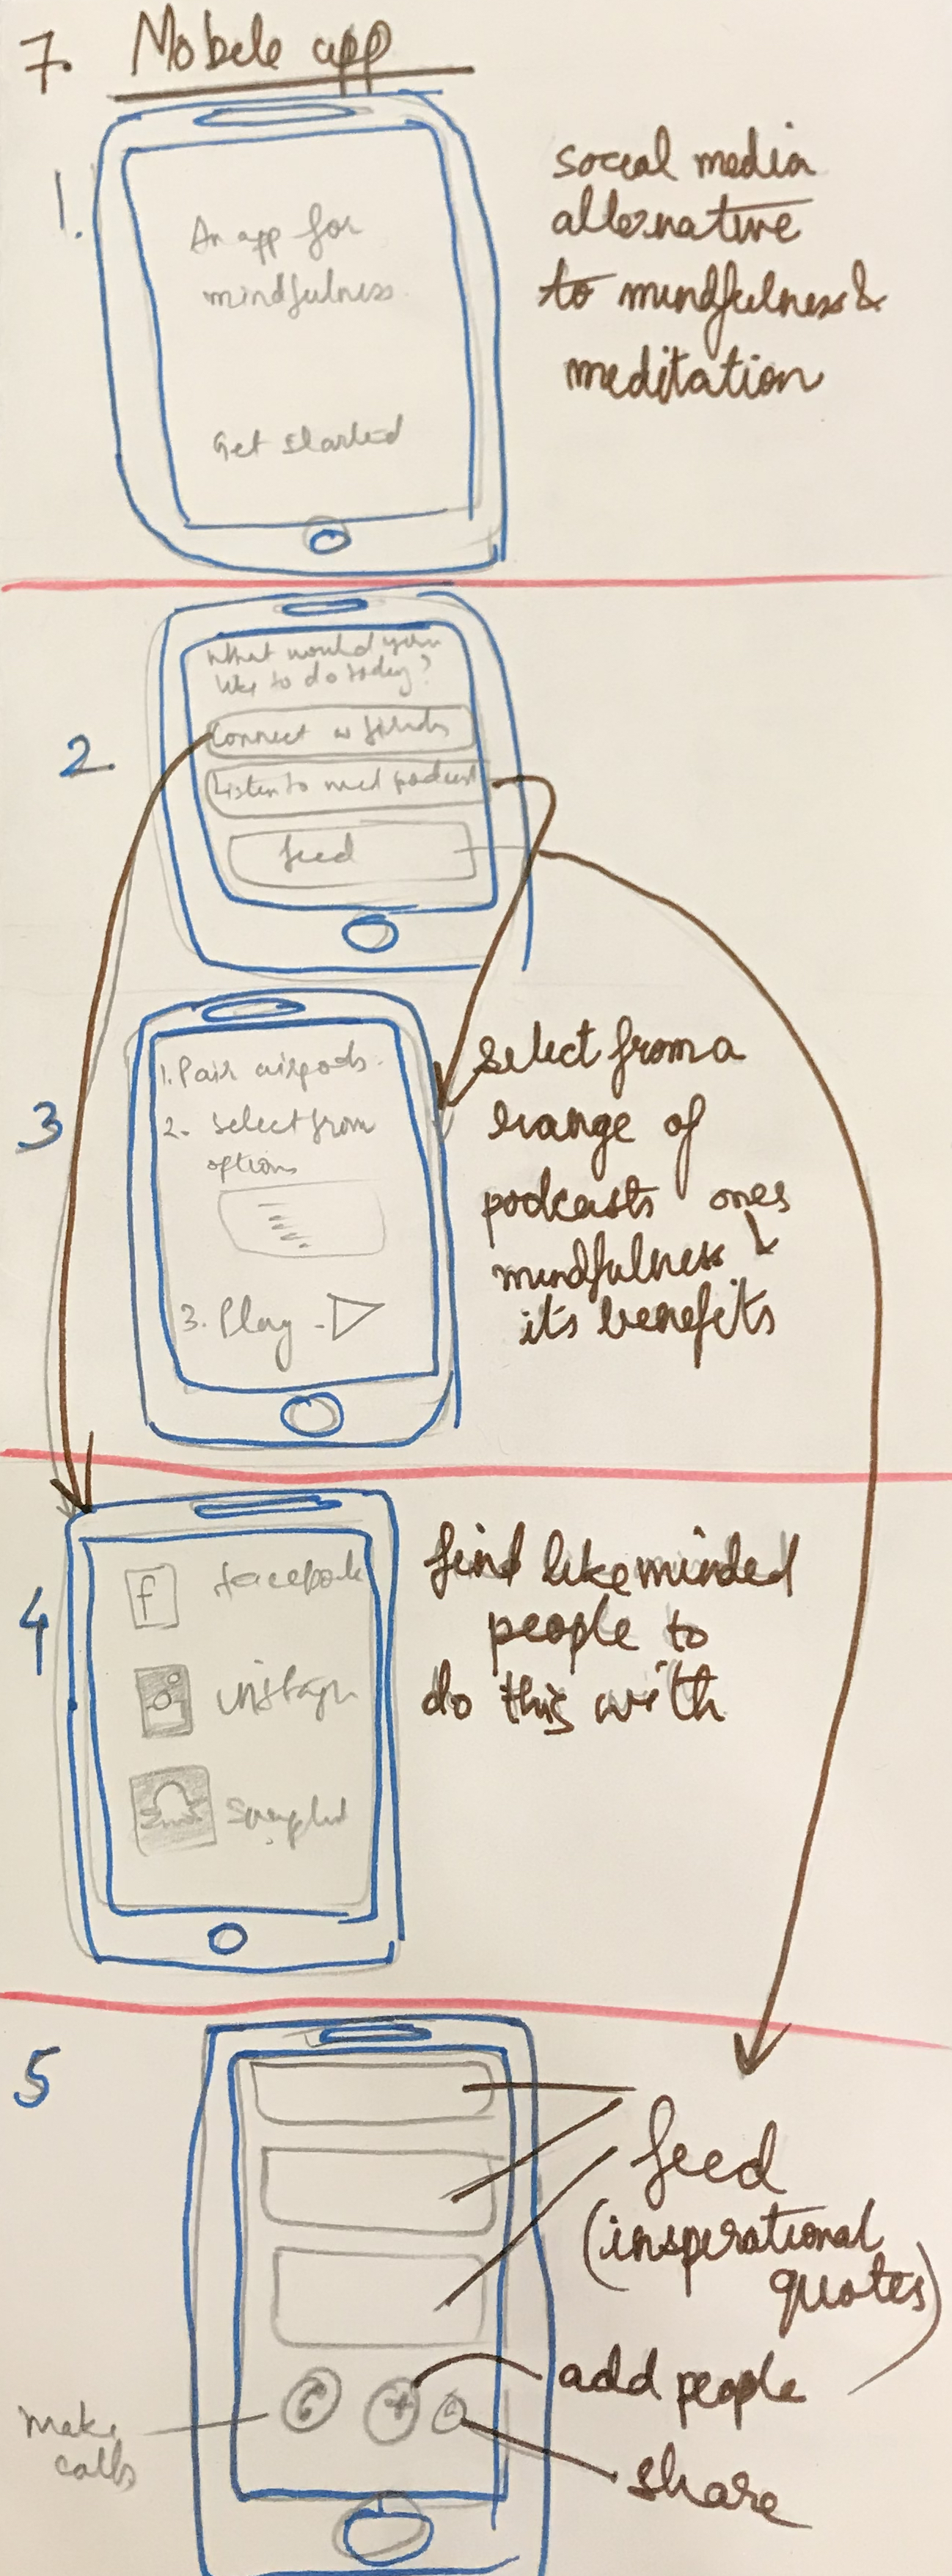 7. Mobile app
1.
An app for
mindfulness.
Get started
social media
alternative
to mindfulness &
meditation
2.
What would you
like to do today?
Connect w friends
Listen to med podcast
feed
3
1. Pair airpods.
2. select from
options
3. Play -
select from a
range of
podcasts ones
mindfulness &
its benefits
4
f facebook
instagm
find like minded
people to
do this with
5
feed
(inspirational
quotes)
add people
share
make
calls